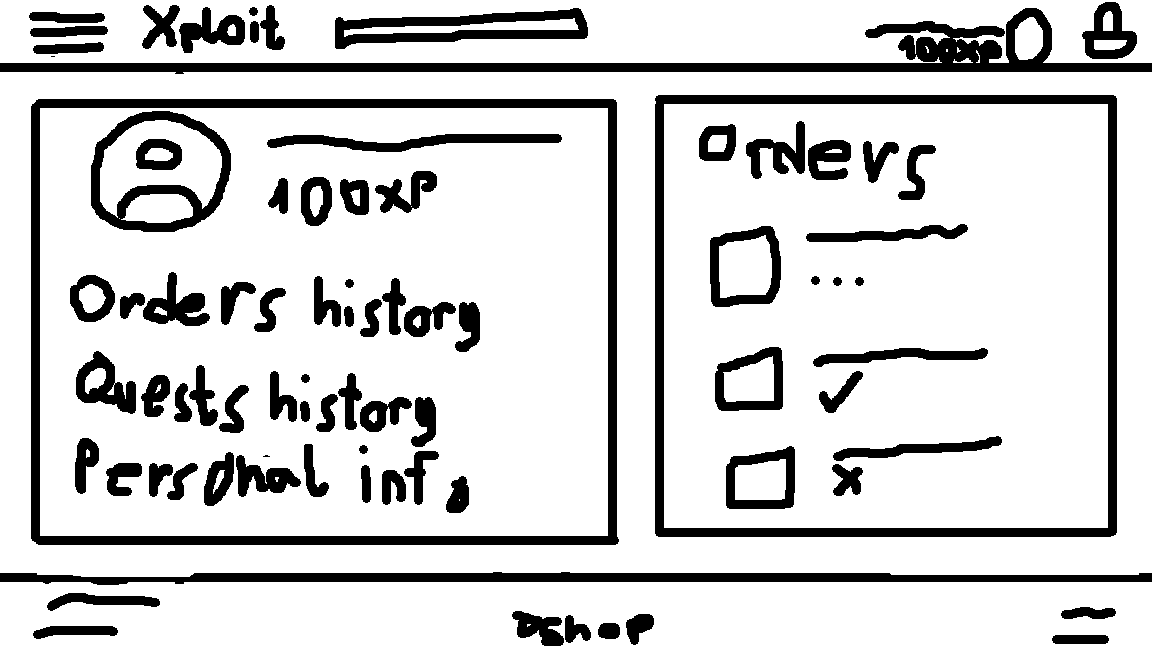 Xploit
100XP
100XP
Orders history
Quests history
Personal info
Orders
...
Shop